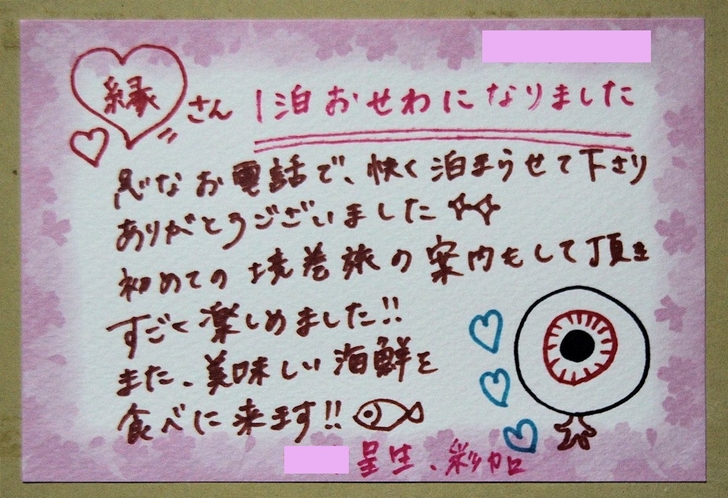 縁さん 1泊おせわになりました
急なお電話で、快く泊まらせて下さり
ありがとうございました
初めての境巻旅の案内もして頂き
すごく楽しめました!!
また、美味しい海鮮を
食べに来ます!!
呈生、彩加